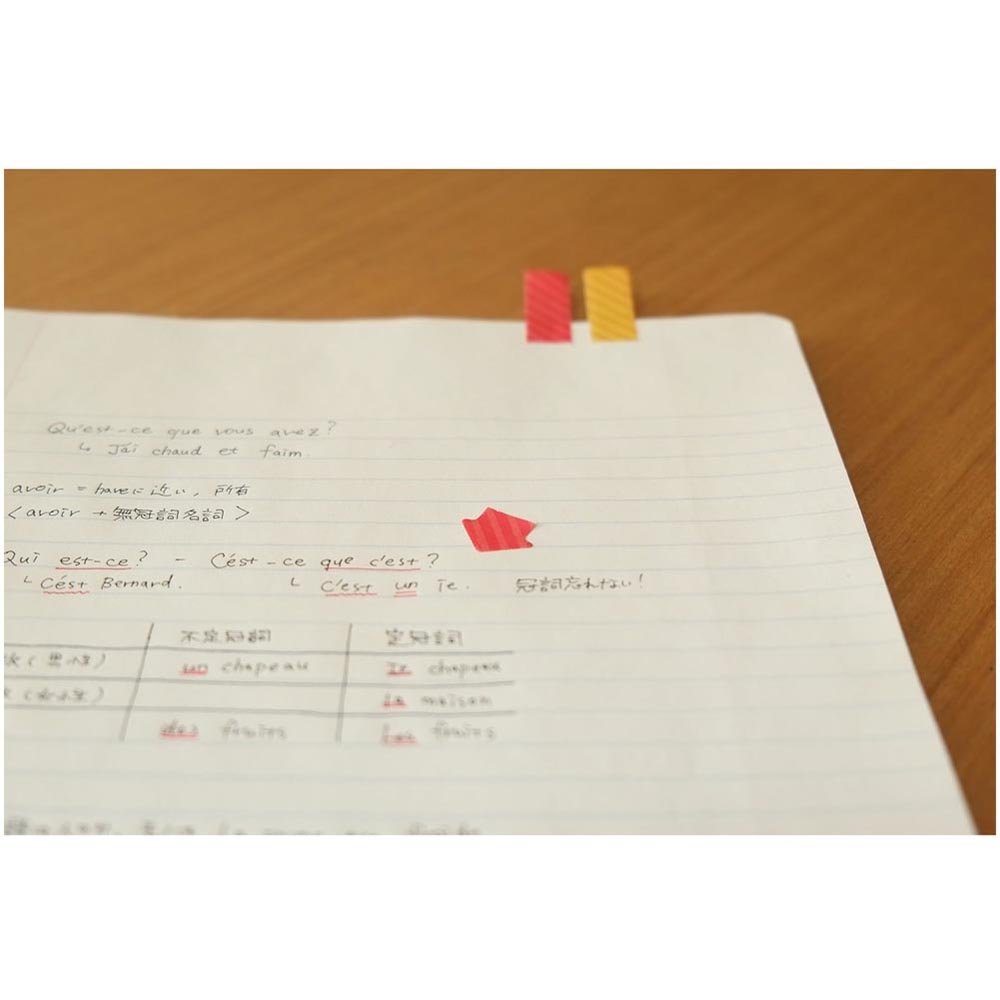 Qu'est-ce que vous avez?
↳ J'ai chaud et faim.
avoir = haveに近い, 所有
<avoir + 無冠詞名詞>
Qui est-ce? - C'ést-ce que c'est?
└ C'ést Bernard. └ C'est un îe. 冠詞忘れない!
不定冠詞 定冠詞
un chapeau le chapeau
la maison
des fruits les fruits